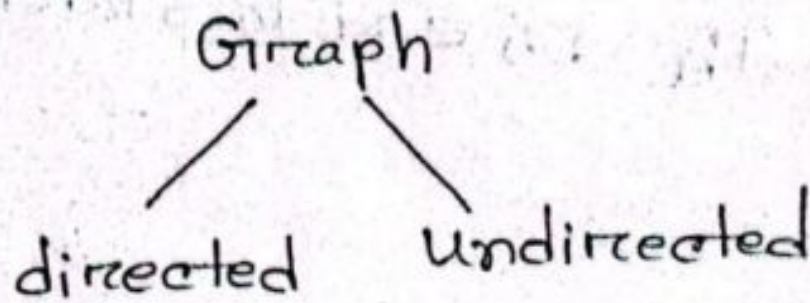 Graph
directed undirected